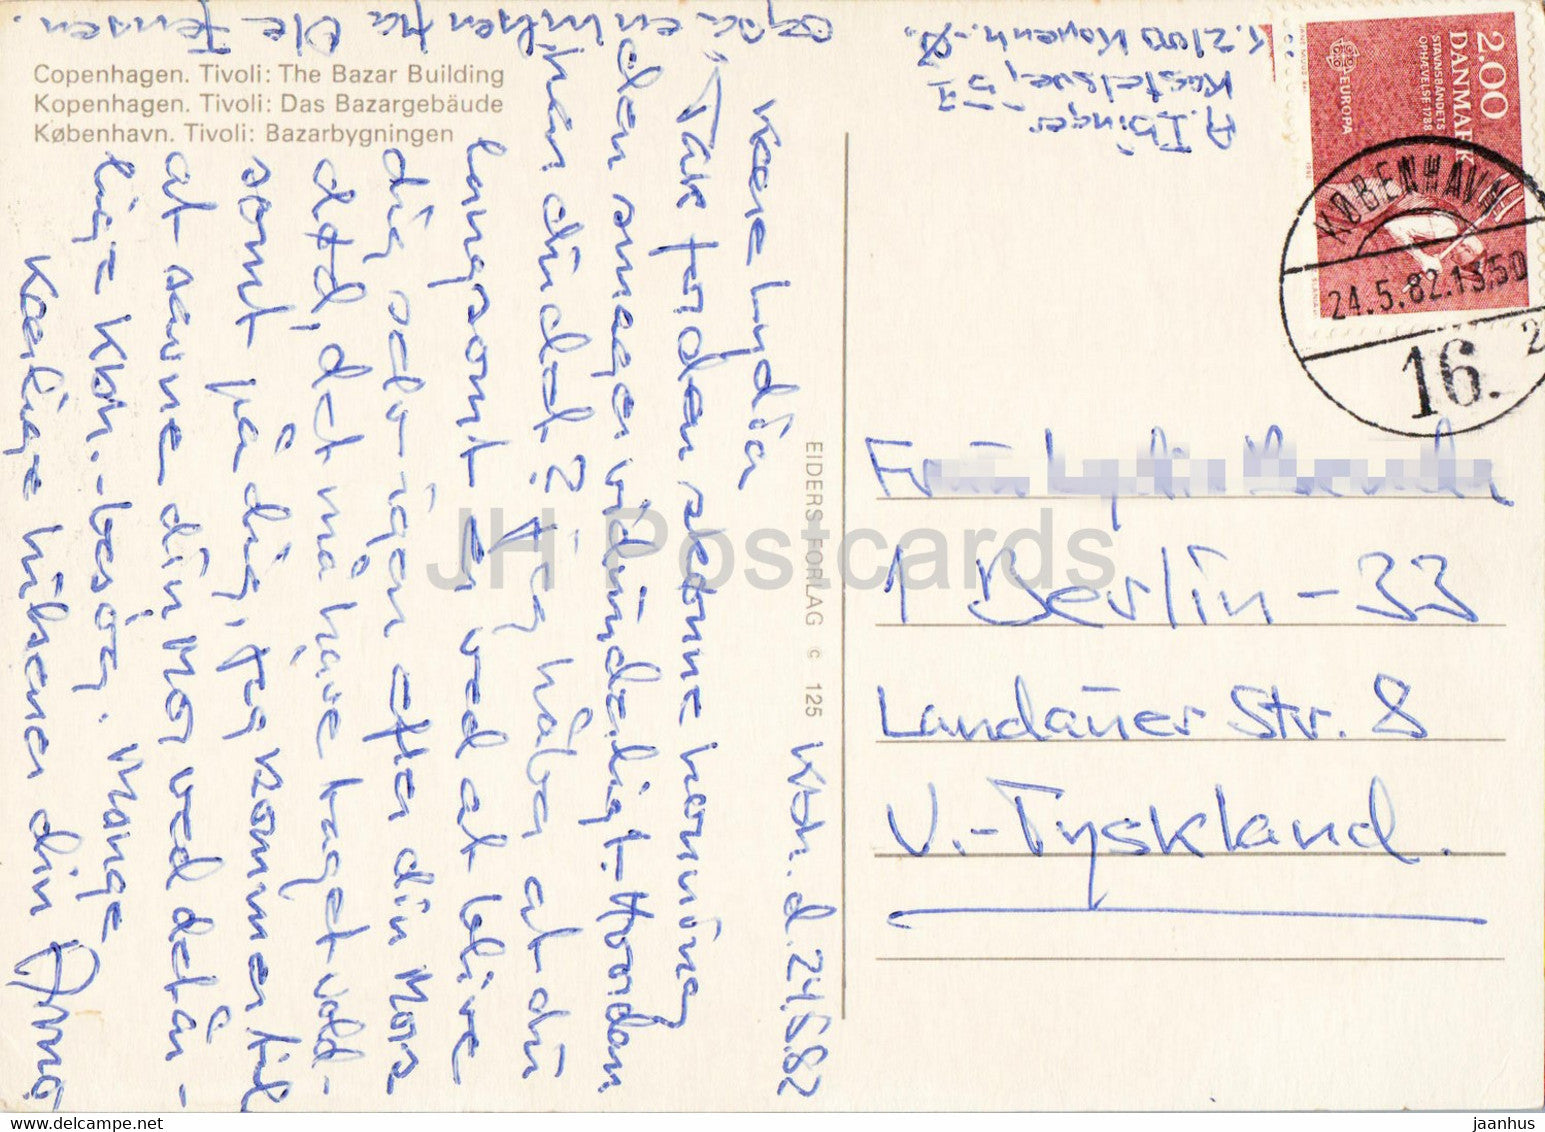 Copenhagen. Tivoli: The Bazar Building
Kopenhagen. Tivoli: Das Bazargebäude
København. Tivoli: Bazarbygningen
Kbh. d. 24.5.82
Kære Lydia
Tak for den skønne honning
den smager vidunderligt - Hvordan
har din det? Jeg håber at du
langsomt er ved at blive
dig selv igen efter din Mors
død, det må have taget vold-
somt på dig, jeg kommer til
at savne din Mor ved det år-
lige Kbh.-besøg. Mange
Kærlige hilsener din
Også en hilsen fra Ole Jensen.
EIDERS FORLAG c 125
A. Ibinger
Kastelsvej
2100 Københ.-Ø.
2.00
DANMARK
STAVNSBÅNDETS
OPHÆVELSE 1788
EUROPA
KØBENHAVN
24.5.82.13,50
16.
Lydia
1 Berlin-33
Landauer Str. 8
V.-Tyskland.
JH Postcards
https://www.jhpostcards.com
jaanhus